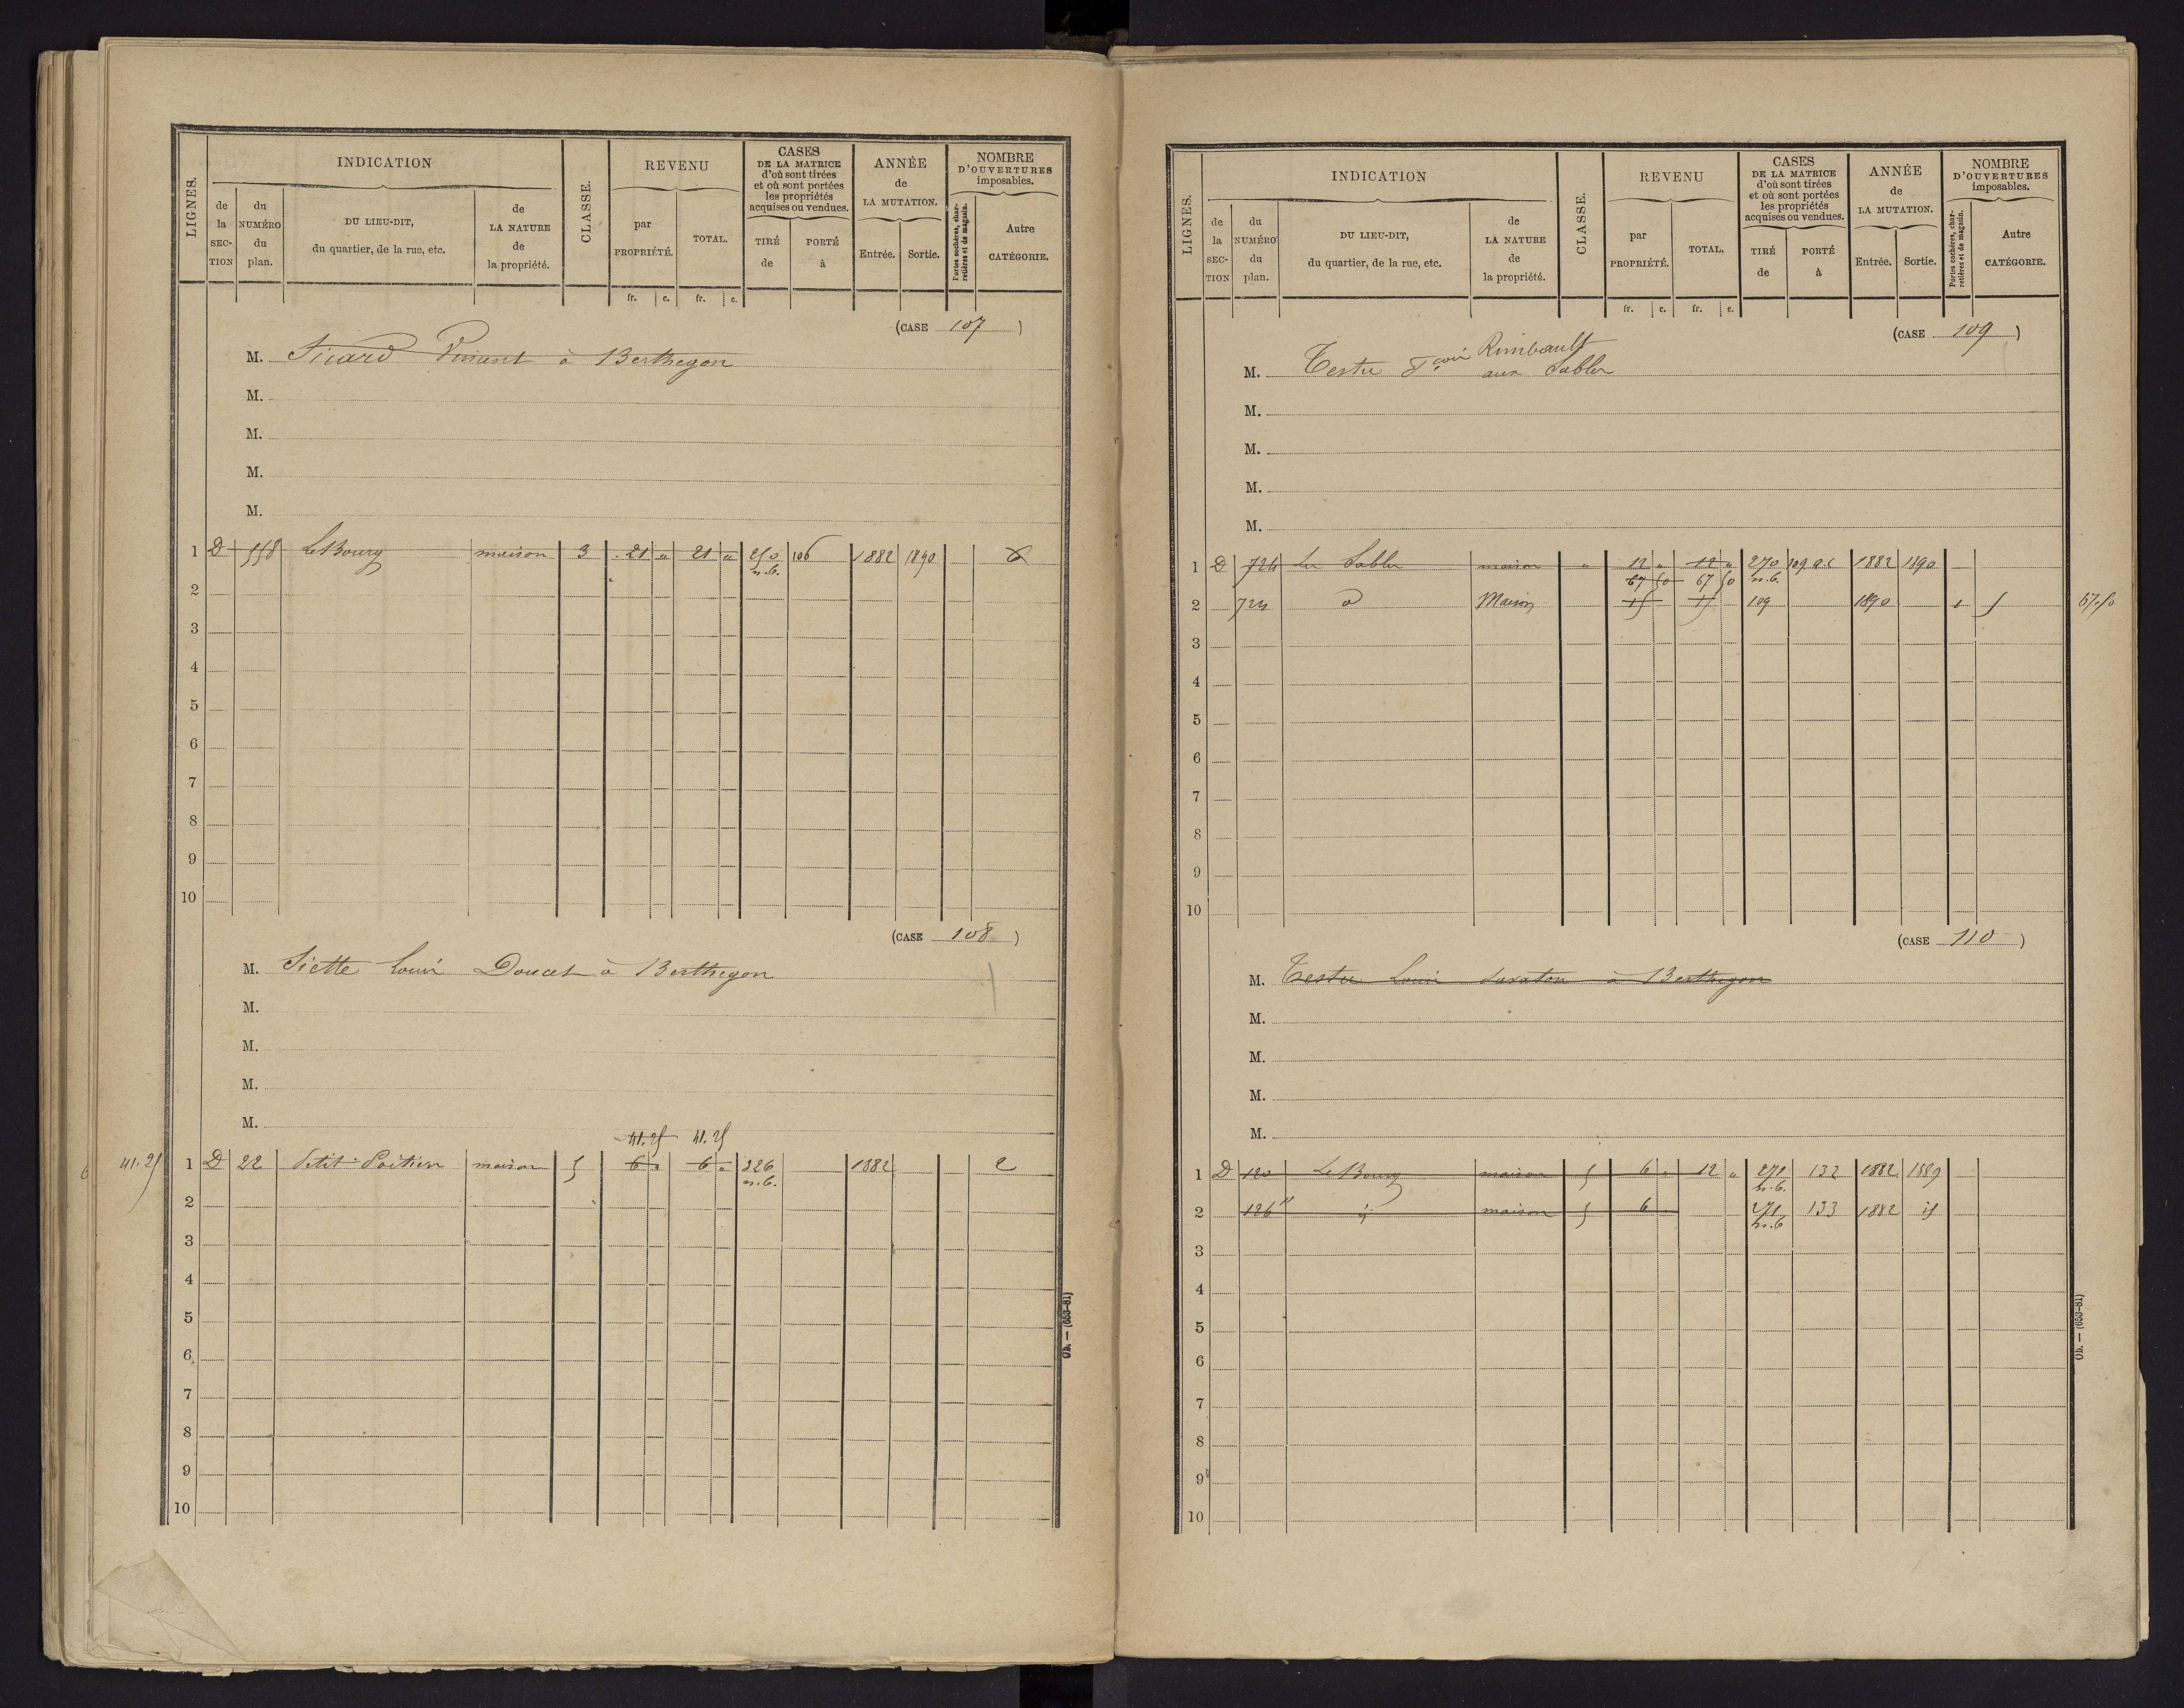 LIGNES.
INDICATION
de la SECTION
du NUMÉRO du plan.
DU LIEU-DIT, du quartier, de la rue, etc.
de LA NATURE de la propriété.
CLASSE.
REVENU
par PROPRIÉTÉ.
TOTAL.
fr. c. fr. c.
CASES DE LA MATRICE d'où sont tirées et où sont portées les propriétés acquises ou vendues.
TIRÉ de
PORTÉ à
ANNÉE de LA MUTATION.
Entrée. Sortie.
NOMBRE D'OUVERTURES imposables.
Portes cochères, charretières et de magasin.
Autre CATÉGORIE.
(CASE 107)
M. Sicard Vincent à Berthegon
M.
M.
M.
M.
1 D 558 Le Bourg maison 3 21 " 21 " 250 n.b. 106 1882 1890 6
2
3
4
5
6
7
8
9
10
(CASE 108)
M. Siette Louis Doucet à Berthegon
M.
M.
M.
M.
41.25 41.25
6 41.25 1 D 22 Petit Poitiers maison 5 6 " 6 " 226 n.b. 1882 2
2
3
4
5
6
7
8
9
10
Ob. — (653-81)
LIGNES.
INDICATION
de la SECTION
du NUMÉRO du plan.
DU LIEU-DIT, du quartier, de la rue, etc.
de LA NATURE de la propriété.
CLASSE.
REVENU
par PROPRIÉTÉ.
TOTAL.
fr. c. fr. c.
CASES DE LA MATRICE d'où sont tirées et où sont portées les propriétés acquises ou vendues.
TIRÉ de
PORTÉ à
ANNÉE de LA MUTATION.
Entrée. Sortie.
NOMBRE D'OUVERTURES imposables.
Portes cochères, charretières et de magasin.
Autre CATÉGORIE.
(CASE 109)
M. Testu Fçois Rimbault aux Sables
M.
M.
M.
M.
1 D 724 Les Sables maison " 12 " 12 " 270 n.b. 109 a.c 1882 1890
67 50 67 50
2 724 d Maison 15 15 109 1890 1 5 67.50
3
4
5
6
7
8
9
10
(CASE 110)
M. Testu Louis Savaton à Berthegon
M.
M.
M.
M.
1 D 120 Le Bourg maison 5 6 " 12 " 271 n.b. 132 1882 1889
2 126 p id maison 5 6 " 271 n.b 133 1882 id
3
4
5
6
7
8
9
10
Ob. — (653-81)